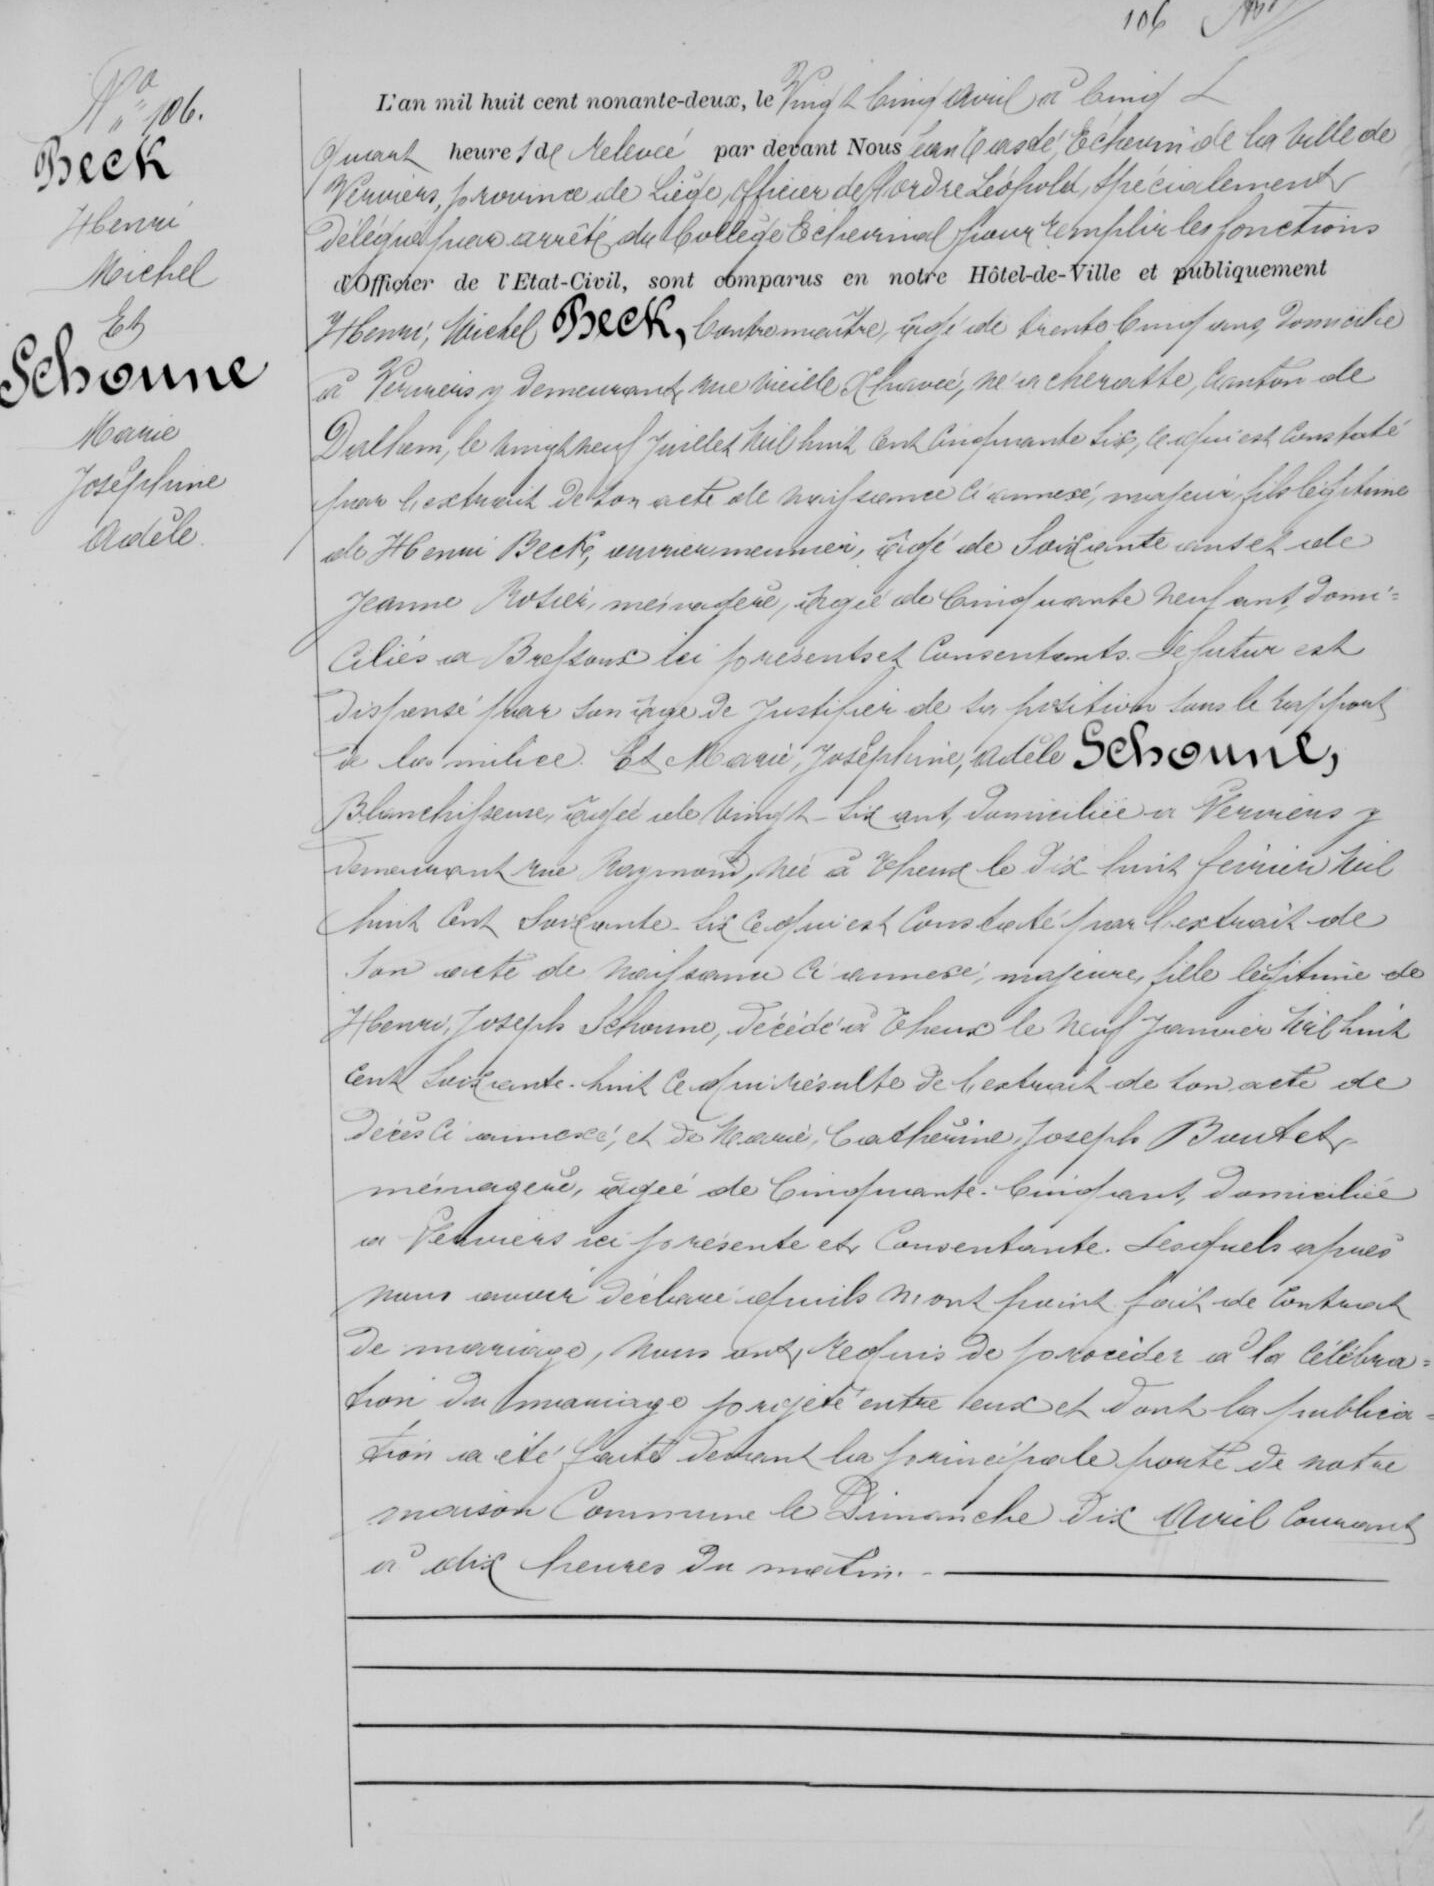 106
N° 106.
Beck
Henri
Michel
Et
Schoune
Marie
Joséphine
Adèle.
L'an mil huit cent nonante-deux, le Vingt Cinq Avril à Cinq
quart heures de relevée par devant Nous Jean Echevin de la Ville de
Verviers, province de Liège, Officier de l'ordre Léopold, Spécialement
Délégué par arrêté du Collège Echevinal pour remplir les fonctions
d'Officier de l'Etat-Civil, sont comparus en notre Hôtel-de-Ville et publiquement
Henri, Michel Beck, Contremaître, âgé de trente Cinq ans, Domicilié
à Verviers y demeurant, rue vieille Xhavée, né à cheratte, Canton de
Dalhem, le vingt neuf Juillet Mil huit Cent Cinquante Six, ce qui est Constaté
par l'extrait de son acte de naissance ci annexé, majeur, fils légitime
de Henri Beck, ouvrier meunier, âgé de Soixante ans et de
Jeanne Rosier, ménagère, âgée de Cinquante Neuf ans, Domi=
Ciliés à Bressoux ici présents et Consentants. Le futur est
Dispensé par son âge de Justifier de sa position sous le rapport
de la milice. Et Marie, Joséphine, Adèle Schoune,
Blanchisseuse, âgée de Vingt-Six ans, Domiciliée à Verviers y
demeurant rue Raymond, née à Theux le Dix huit février Mil
huit Cent Soixante-Six ce qui est Constaté par l'extrait de
Son acte de Naissance ci annexé, majeure, fille légitime de
Henri, Joseph Schoune, Décédé à Theux le Neuf Janvier Mil huit
Cent Soixante-huit ce qui résulte de l'extrait de son acte de
Décès ci annexé, et de Marie, Catherine, Joseph Boutet,
ménagère, âgée de Cinquante-Cinq ans, Domiciliée
à Verviers ici présente et Consentante. Lesquels après
nous avoir Déclaré qu'ils n'ont point fait de Contrat
de mariage, nous ont requis de procéder à la Célébra=
tion du mariage projeté entre eux et dont la publica=
tion a été faite devant la principale porte de notre
maison Commune le Dimanche Dix Avril Courant
à dix heures du matin.